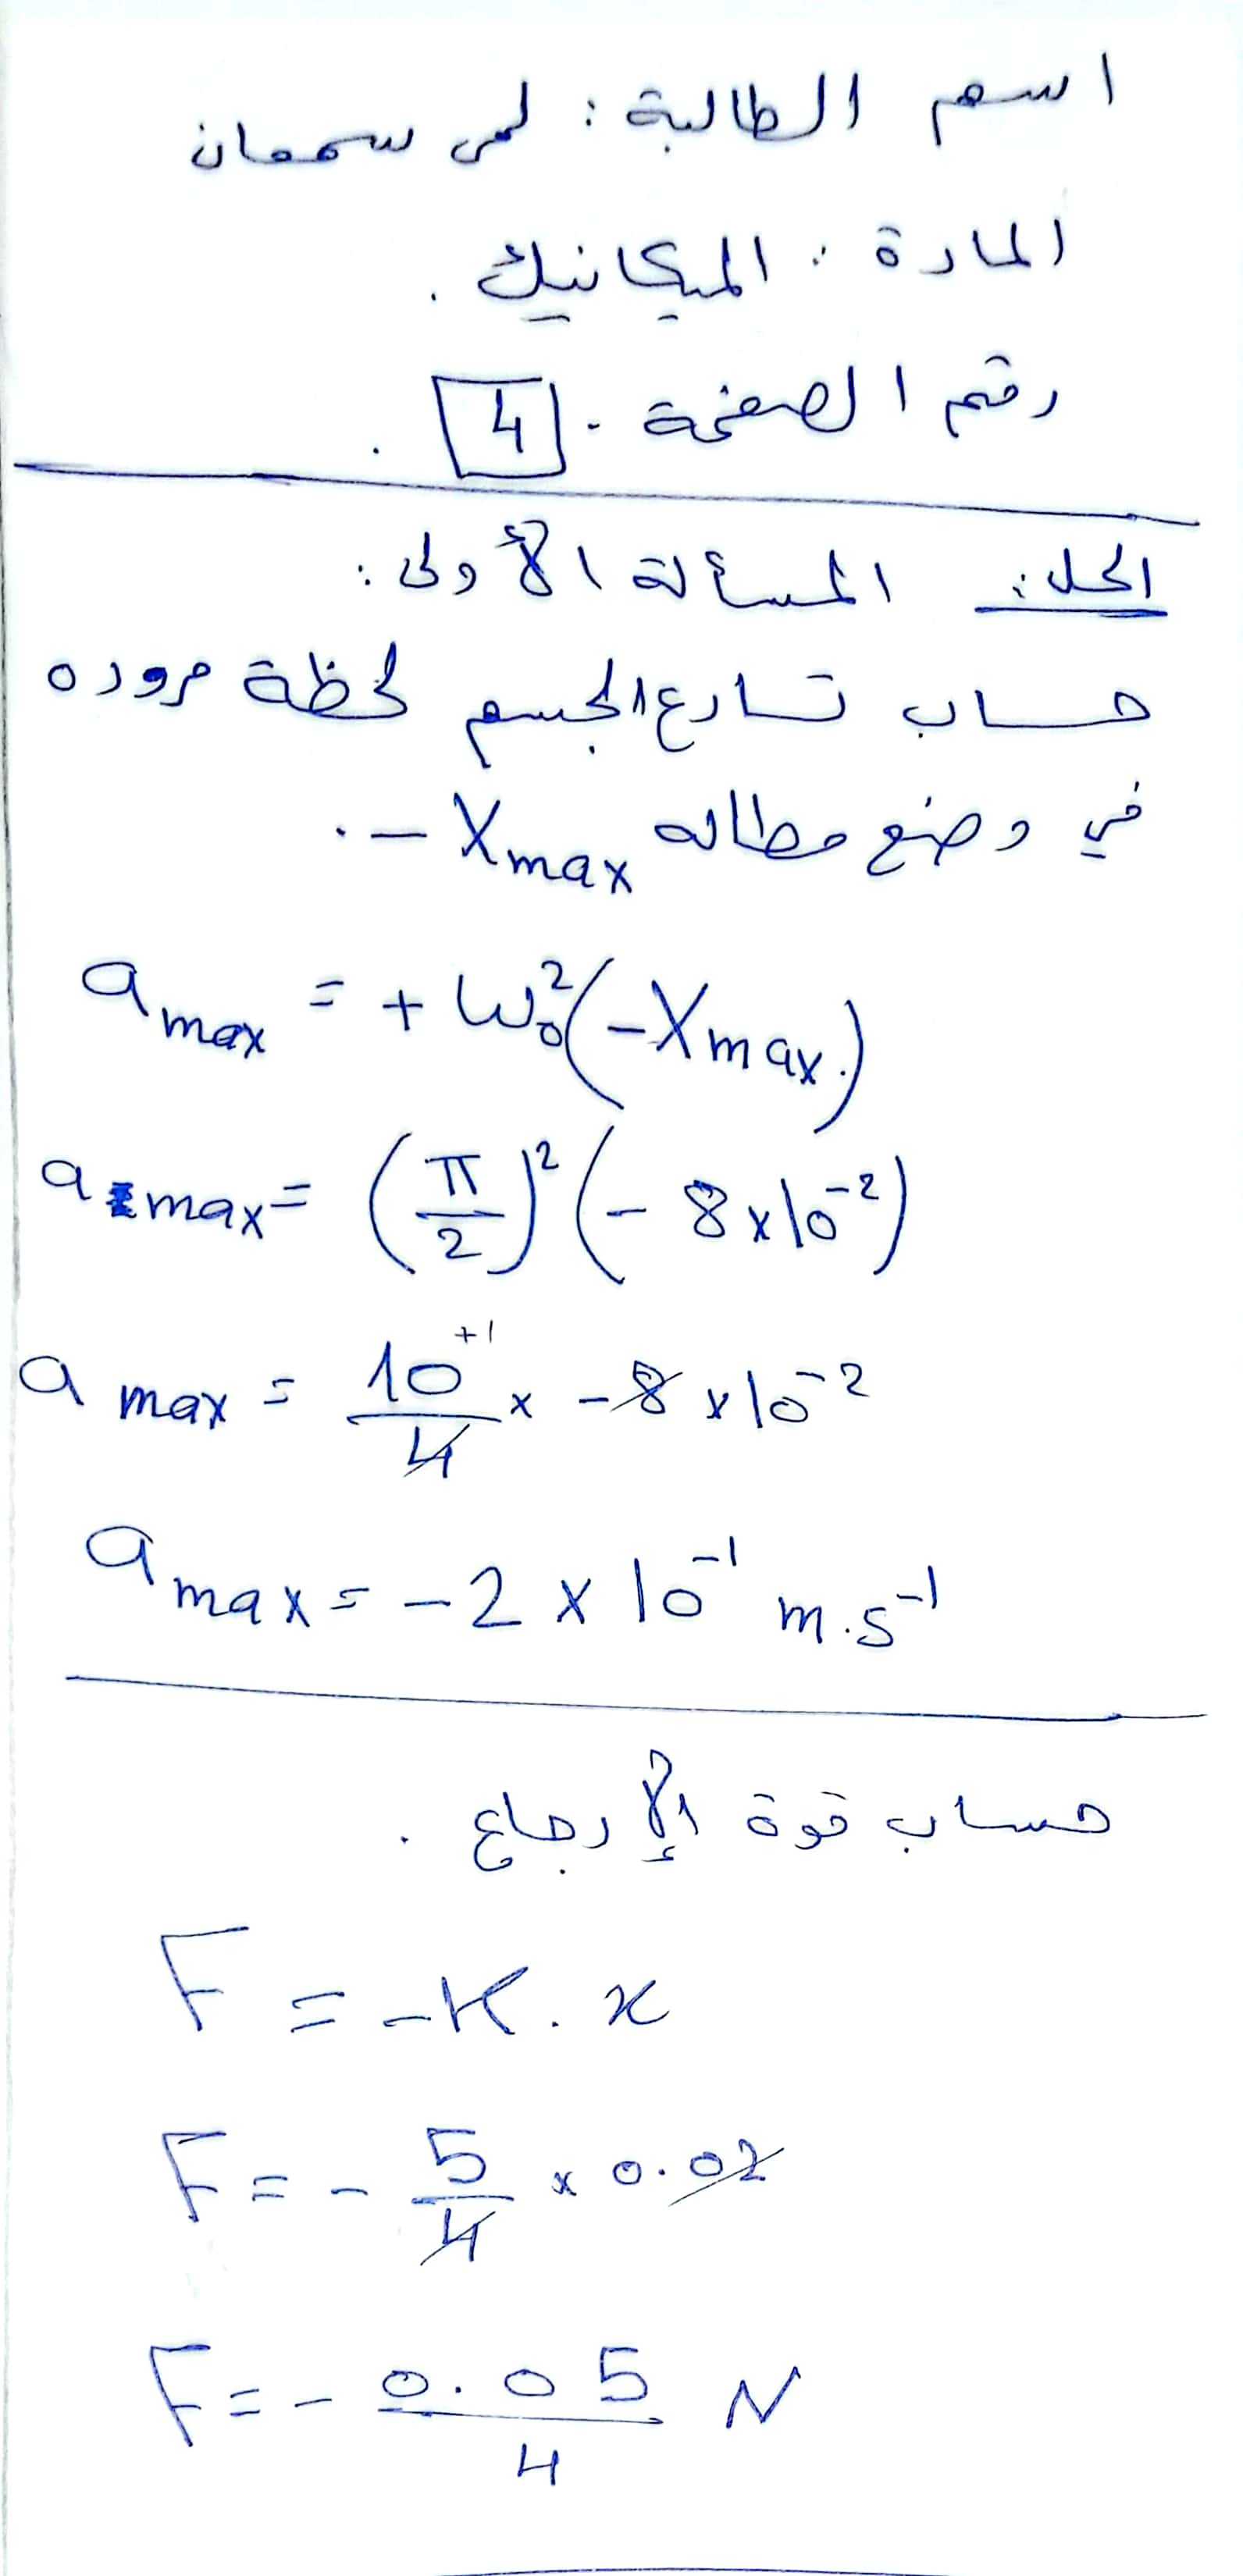 اسم الطالبة : لمى سمعان
المادة : الميكانيك .
رقم الصفحة . 4 .
الحل : المسألة الأولى :
حساب تسارع الجسم لحظة مروره
في وضع مطاله -Xmax .
a max = + ω₀²(-Xmax.)
a max = (π/2)² (- 8x10⁻²)
a max = 10⁺¹/4 x -8 x10⁻²
a max = -2 x 10⁻¹ m.s⁻¹
حساب قوة الإرجاع .
F = -K. x
F = - 5/4 x 0.02
F = - 0.05/4 N